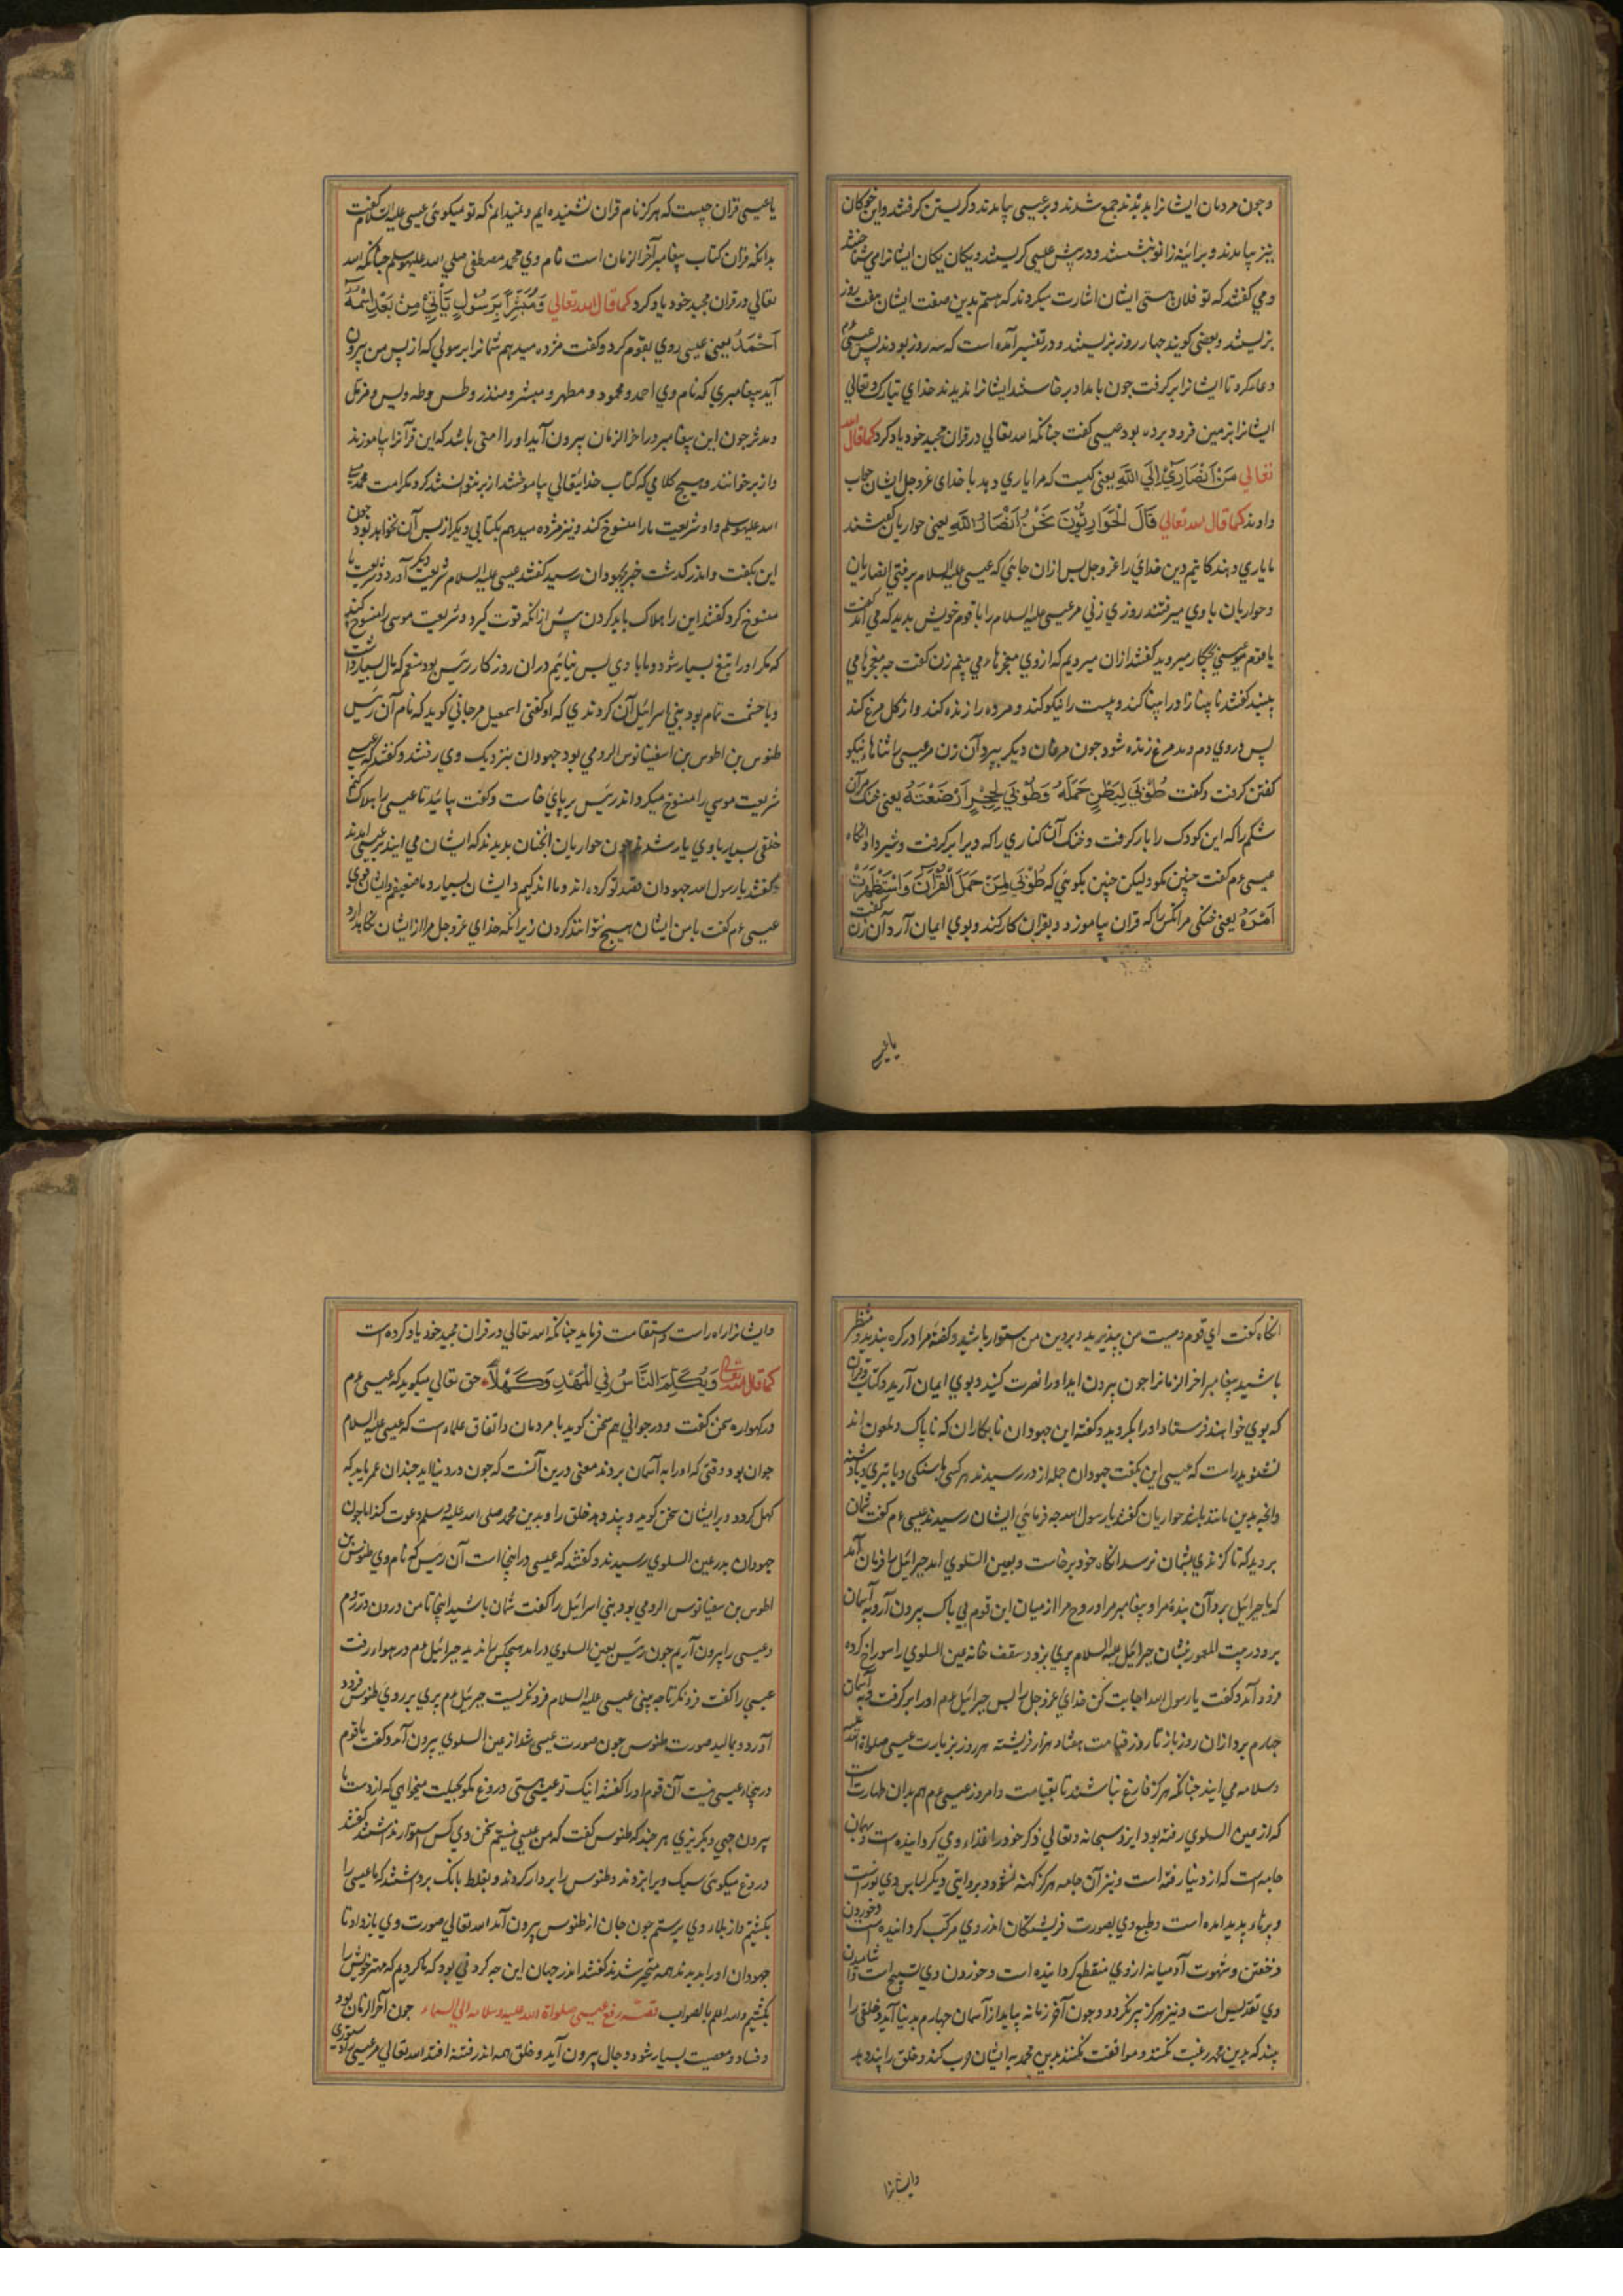 وچون مردمان ایشانرا بدیدند جمع شدند و بر عیسی بیامدند و کریستن کرفتند و این خوکان
نیز بیامدند و بزانو بنشستند و در پیش عیسی کریستند و یکان یکان ایشانرا می شناختند
و می کفتند که تو فلان هستی ایشان اشارت میکردند که هستم بدین صفت ایشان هفت روز
بزیستند و بعضی کویند چهار روز بزیستند و در تفسیر آمده است که سه روز بودند پس عیسی ءم
دعا کرد تا ایشانرا بر کرفت چون بامداد بر خاستند ایشانرا ندیدند خدای تبارک و تعالی
ایشانرا بزمین فرود برده بود عیسی کفت چنانکه الله تعالی در قران مجید خود یاد کرد کما قال الله
تعالی مَنْ اَنْصَارِیٓ اِلَی اللهِ یعنی کیست که مرا یاری دهد با خدای عز و جل ایشان جواب
دادند کما قال الله تعالی قَالَ الْحَوَارِیُّونَ نَحْنُ اَنْصَارُ اللهِ یعنی حواریان کفتند
ما یاری دهندکانیم دین خدای را عز و جل پس ازان جائی که عیسی علیه السلام برفتی انصاریان
و حواریان با وی میرفتند روزی زنی مر عیسی علیه السلام را با قوم خویش بدید که می آمد کفت
یا قوم عیسی بچکار میروید کفتند ازان میرویم که از وی معجزها می بینیم زن کفت چه معجزها می
بینید کفتند نابینا را بینا کند و پیست را نیکو کند و مرده را زنده کند و از کل مرغ کند
پس در وی دم دمد مرغ زنده شود چون مرغان دیکر ببرد آن زن مر عیسی را ثناهاء نیکو
کفتن کرفت و کفت طُوْبَی لِبَطْنٍ حَمَلَهُ وَ طُوْبَی لِحِجْرٍ اَرْضَعَتْهُ یعنی خنک مر آن
شکم را که این کودک را بار کرفت و خنک آن کناری را که ویرا بر کرفت و شیر داد آنکاه
عیسی ءم کفت چنین مکو ولیکن چنین بکوئی که طُوْبَی لِمَنْ حَمَلَ الْقُرْآنَ وَاسْتَظْهَرَتْ
اَمْرَهُ یعنی خنکی مر آنکس را که قران بیاموزد و بقران کار کند و بوی ایمان آرد آن زن کفت
یا عیسی
یا عیسی قران چیست که هرکز نام قران نشنیده ایم و نمیدانم که تو میکوئی عیسی علیه السلام کفت
بدانکه قران کتاب پیغامبر آخر الزمان است نام وی محمد مصطفی صلی الله علیه و سلم چنانکه الله
تعالی در قران مجید خود یاد کرد کما قال الله تعالی وَمُبَشِّرًا بِرَسُولٍ یَأْتِی مِنْ بَعْدِی اسْمُهُ
اَحْمَدُ یعنی عیسی روی بقوم کرد و کفت مژده میدهم شمانرا برسولی که از پس من بیرون
آید پیغامبری که نام وی احمد و محمود و مطهر و مبشر و منذر و طس و طه و یس و مزمل
و مدثر چون این پیغامبر در اخر الزمان بیرون آید او را امتی باشد که این قرآنرا بیاموزند
و از بر خوانند و هیچ کلامی که کتاب خدایتعالی بیاموختند از بر نتوانستند کرد مکر امت محمد صلی
الله علیه و سلم و او شریعت ما را منسوخ کند و نیز مژده میدهم بکتابی دیکر از پس آن نخواهد بود چون
این بکفت و اندر کذشت خبر بجهودان رسید کفتند عیسی علیه السلام شریعت دیکر آورد و شریعت ما
منسوخ کرد کفتند این را هلاک باید کردن پیش از انکه قوت کیرد و شریعت موسی را منسوخ کند
که مکر او را تبع بسیار شود و ما با وی بس نیائیم دران روزکار رئیس بود منعم که مال بسیار داشت
و با حشمت تمام بود بنی اسرائیل آن کردندی که او کفتی اسمعیل مرجانی کوید که نام آن رئیس
طنوس بن اطوس بن اسفیانوس الرومی بود جهودان بنزدیک وی رفتند و کفتند که عیسی
شریعت موسی را منسوخ میکرداند رئیس بر پای خاست و کفت بیائید تا عیسی را هلاک کنیم
خلقی بسیار با وی یار شدند چون حواریان انچنان بدیدند که ایشان می ایند بر عیسی امدند
کفتند یا رسول الله جهودان قصد تو کرده اند و ما اندکیم و ایشان بسیارند ما ضعیفیم و ایشان قوی
عیسی ءم کفت با من ایشان هیچ نتوانند کردن زیرا نکه خدای عز و جل مرا از ایشان نکاهدارد
انکاه کفت ای قوم وصیت من بپذیرید و بر دین من استوار باشید و کفتهٔ مرا در کره بندید و منتظر
باشید پیغامبر اخر الزمانرا چون بیرون اید او را نصرت کنید و بوی ایمان آرید و کتاب و قران
که بوی خواهند فرستاد او را بکروید و کفتهٔ این جهودان نابکاران که ناپاک و ملعون اند
نشنوید راست که عیسی این بکفت جهودان جمله از در رسیدند هر کسی با سنکی و یا تبری و یا دشنه
و انچه بدین ماند باز حواریان کفتند یا رسول الله چه فرمائی ایشان رسیدند عیسی ءم کفت شمان
بروید که تا کزندی بشمان نرسد انکاه خود برخاست و بعین السلوی امد جبرائیل را فرمان آمد
که یا جبرائیل برو آن بندهٔ مرا و پیغامبر مرا و روح مرا از میان این قوم بی باک بیرون آر و به آسمان
برو در بیت المعمور بنشان جبرائیل علیه السلام پری بزد و سقف خانه عین السلوی را سوراخ کرده
فرود آمد و کفت یا رسول الله اجابت کن خدای عز و جل را پس جبرائیل ءم او را بر کرفت و به آسمان
چهارم برد ازان روز باز تا روز قیامت هفتاد هزار فریشته هر روز بزیارت عیسی صلواة الله علیه
و سلامه می ایند چنانکه هرکز فارغ نباشند تا بقیامت و امروز عیسی ءم هم بدان طهارت است
که از عین السلوی رفته بود ایزد سبحانه و تعالی ذکر خود را غذاء وی کردانیده است و همان
جامه است که از دنیا رفته است و نیز آن جامه هرکز کهنه نشود و بروایتی دیکر لباس وی نورست
و پرهاء پدید امده است و طبع وی بصورت فریشتکان اندر وی مرکب کردانیده است و خوردن
و خفتن و شهوت آدمیانه از وی منقطع کردانیده است و خوردن وی تسبیح است و آشامیدن
وی تقدیس است و نیز هرکز پیر نکردد و چون آخر زمانه بیاید از آسمان چهارم بدنیا آید و خلقی را
بیند که بدین محمد رغبت نکنند و موافقت نکنند بدین محمد با ایشان حرب کند و خلق را پند دهد
و ایشانرا
و ایشانرا راه راست و استقامت فرماید چنانکه الله تعالی در قران مجید خود یاد کرده است
کما قال الله تعالی وَیُکَلِّمُ النَّاسَ فِی الْمَهْدِ وَکَهْلًا حق تعالی میکوید که عیسی ءم
در کهواره سخن کفت و در جوانی هم سخن کوید با مردمان و اتفاق علماء است که عیسی علیه السلام
جوان بود وقتی که او را به آسمان بردند معنی درین آنست که چون در دنیا اید چندان عمر یابد که
کهل کردد و با ایشان سخن کوید و پند دهد خلق را و بدین محمد صلی الله علیه و سلم دعوت کند اما چون
جهودان بدر عین السلوی رسیدند و کفتند که عیسی در اینجا است آن رئیس که نام وی طنوس بن
اطوس بن سفیانوس الرومی بود بنی اسرائیل را کفت شمان باشید اینجا تا من درون در روم
و عیسی را بیرون آریم چون رئیس بعین السلوی در امد هیچکس را ندید جبرائیل ءم در هوا در رفت
عیسی را کفت فرو نکر تا چه بینی عیسی علیه السلام فرو نکریست جبرئیل ءم پری بر روی طنوس فرود
آورد و بمالید صورت طنوس چون صورت عیسی شد از عین السلوی بیرون آمد و کفت یا قوم
درینجاء عیسی نیست آن قوم او را کفتند اینک تو عیسی هستی دروغ مکو بحیلت میخواهی که از دست ما
بیرون جهی و بکریزی هر چند که طنوس کفت که من عیسی نیستم سخن وی کس استوار نداشتند و کفتند
دروغ میکوئی سبک ویرا بزدند و طنوس را بردار کردند و بغلط بانک برداشتند که ما عیسی را
بکشتیم و از بلاء وی برستیم چون جان از طنوس بیرون آمد الله تعالی صورت وی باز داد تا
جهودان او را بدیدند همه متحیر شدند کفتند اندر جهان این چه کردنی بود که ما کردیم که مهتر خویش را
بکشتیم والله اعلم بالصواب قصهٔ رفع عیسی صلواة الله علیه و سلامه الی السماء چون آخر الزمان بود
و فساد و معصیت بسیار شود و دجال بیرون آید و خلق همه اندر فتنه افتد الله تعالی مر عیسی را